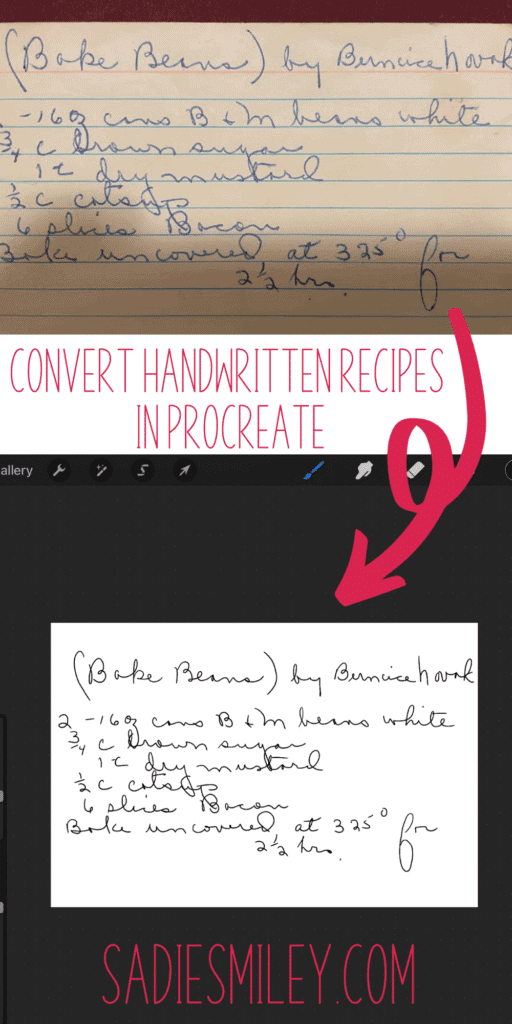 (Bake Beans) by Bernice Novak
-16oz cans B & M beans white
3/4 c Brown sugar
1 t dry mustard
1/2 c catsup
6 slices Bacon
Bake uncovered at 325° for
2 1/2 hrs.
CONVERT HANDWRITTEN RECIPES
IN PROCREATE
allery
(Bake Beans) by Bernice Novak
2 -16oz cans B & M beans white
3/4 c Brown sugar
1 t dry mustard
1/2 c catsup
6 slices Bacon
Bake uncovered at 325° for
2 1/2 hrs.
SADIESMILEY.COM